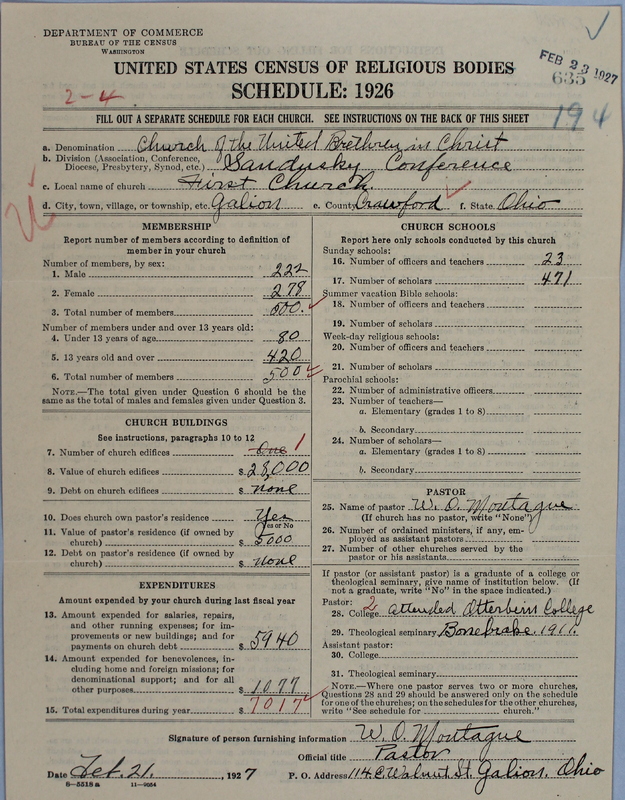 DEPARTMENT OF COMMERCE
BUREAU OF THE CENSUS
WASHINGTON
FEB 23 1927
635
UNITED STATES CENSUS OF RELIGIOUS BODIES
2-4
SCHEDULE: 1926
194
FILL OUT A SEPARATE SCHEDULE FOR EACH CHURCH. SEE INSTRUCTIONS ON THE BACK OF THIS SHEET
a. Denomination Church of the United Brethren in Christ
b. Division (Association, Conference, Diocese, Presbytery, Synod, etc.) Sandusky Conference
c. Local name of church First Church
d. City, town, village, or township, etc. Galion e. County Crawford f. State Ohio
MEMBERSHIP
Report number of members according to definition of
member in your church
Number of members by sex:
1. Male 222
2. Female 278
3. Total number of members 500.
Number of members under and over 13 years old:
4. Under 13 years of age 80
5. 13 years old and over 420
6. Total number of members 500
NOTE.—The total given under Question 6 should be
same as the total of males and females given under Question 3.
CHURCH BUILDINGS
See instructions, paragraphs 10 to 12
7. Number of church edifices One 1
8. Value of church edifices $ 28,000
9. Debt on church edifices $ none
10. Does church own pastor's residence Yes
Yes or No
11. Value of pastor's residence (if owned by
church) $ 5000
12. Debt on pastor's residence (if owned by
church) $ none
EXPENDITURES
Amount expended by your church during last fiscal year
13. Amount expended for salaries, repairs,
and other running expenses; for im-
provements or new buildings; and for
payments on church debt $ 5940
14. Amount expended for benevolences, in-
cluding home and foreign missions; for
denominational support; and for all
other purposes $ 1077
15. Total expenditures during year $ 7017
CHURCH SCHOOLS
Report here only schools conducted by this church
Sunday schools:
16. Number of officers and teachers 23
17. Number of scholars 471
Summer vacation Bible schools:
18. Number of officers and teachers
19. Number of scholars
Week-day religious schools:
20. Number of officers and teachers
21. Number of scholars
Parochial schools:
22. Number of administrative officers
23. Number of teachers—
a. Elementary (grades 1 to 8)
b. Secondary
24. Number of scholars—
a. Elementary (grades 1 to 8)
b. Secondary
PASTOR
25. Name of pastor W. O. Montague
(If church has no pastor, write "None")
26. Number of ordained ministers, if any, em-
ployed as assistant pastors
27. Number of other churches served by the
pastor or his assistants
If pastor (or assistant pastor) is a graduate of a college or
theological seminary, give name of institution below. (If
not a graduate, write "No" in the space indicated.)
Pastor: 2
28. College attended Otterbein College
29. Theological seminary Bonebrake. 1911.
Assistant pastor:
30. College
31. Theological seminary
NOTE.—Where one pastor serves two or more churches,
Questions 28 and 29 should be answered only on the schedule
for one of the churches; on the schedules for the other churches,
write "See schedule for church."
Signature of person furnishing information W. O. Montague
Official title Pastor
Date Feb. 21. , 1927 P. O. Address 114 E Walnut. St. Galion, Ohio
8-5518a 11-9054